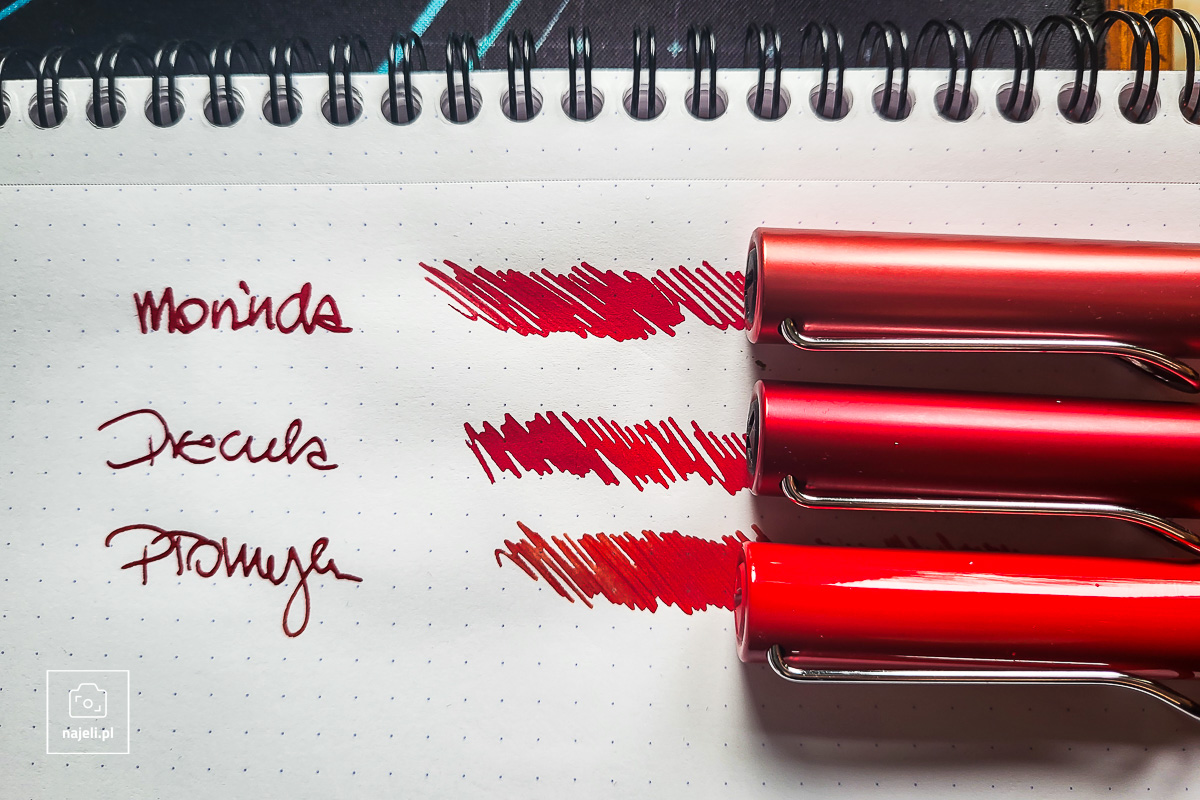 Morinda
Dracula
Promyk
najeli.pl